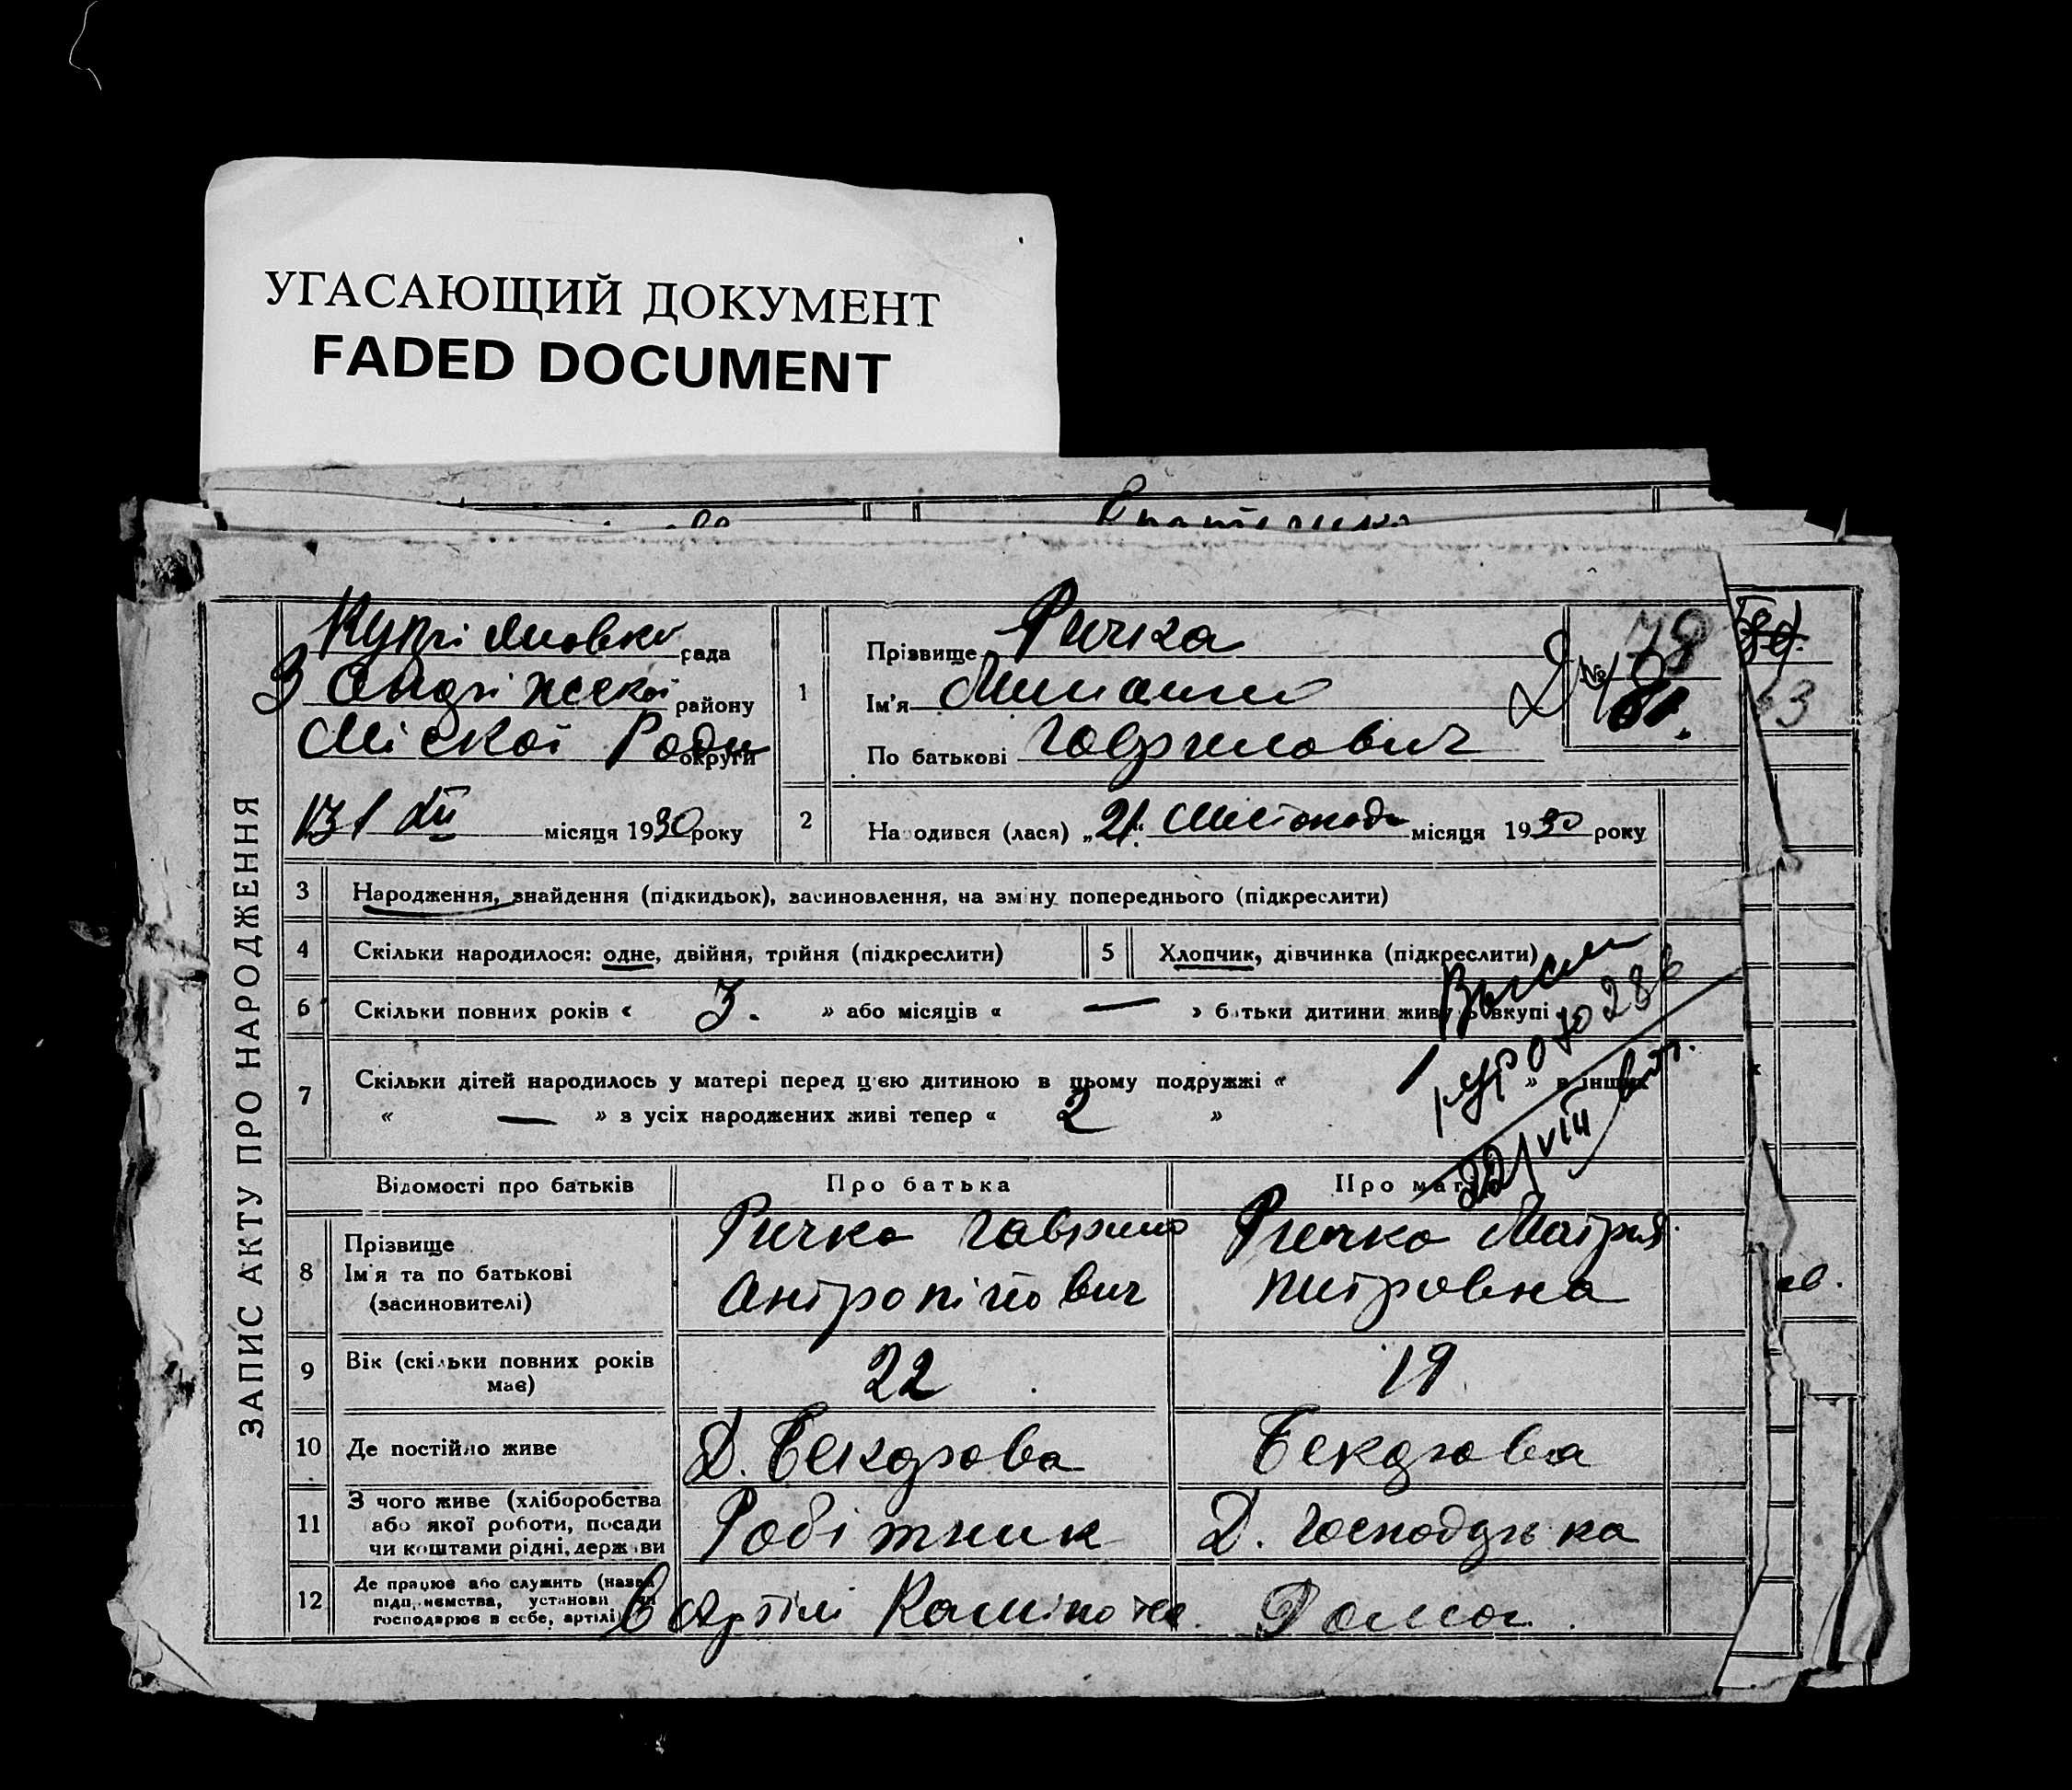 УГАСАЮЩИЙ ДОКУМЕНТ
FADED DOCUMENT
ЗАПИС АКТУ ПРО НАРОДЖЕННЯ
рада
району
Міскої Ради округи
13/XII місяця 1930 року
1
Прізвище Ричка
Ім'я
По батькові Гаврилович
№
78
2
Народився (лася) „21“ Листопада місяця 1930 року
3 Народження, знайдення (підкидьок), засиновлення, на зміну попереднього (підкреслити)
4 Скільки народилося: одне, двійня, трійня (підкреслити)
5 Хлопчик, дівчинка (підкреслити)
6 Скільки повних років « 3. » або місяців « — » батьки дитини живуть вкупі
7 Скільки дітей народилось у матері перед цією дитиною в цьому подружжі « 1 » в інших
« — » з усіх народжених живі тепер « 2 »
22/VIII
Відомості про батьків Про батька Про матір
8 Прізвище
Ім'я та по батькові
(засиновителі)
Ричка Гаврило
Антропійович
Ричка Мотря
Питровна
9 Вік (скільки повних років має) 22 19
10 Де постійно живе
11 З чого живе (хліборобства
або якої роботи, посади
чи коштами рідні, держави
Робітник Д. Господарька
12 Де працює або служить (назва
підприємства, установи чи
господарює в себе, артілі)
В Артілі Дома.